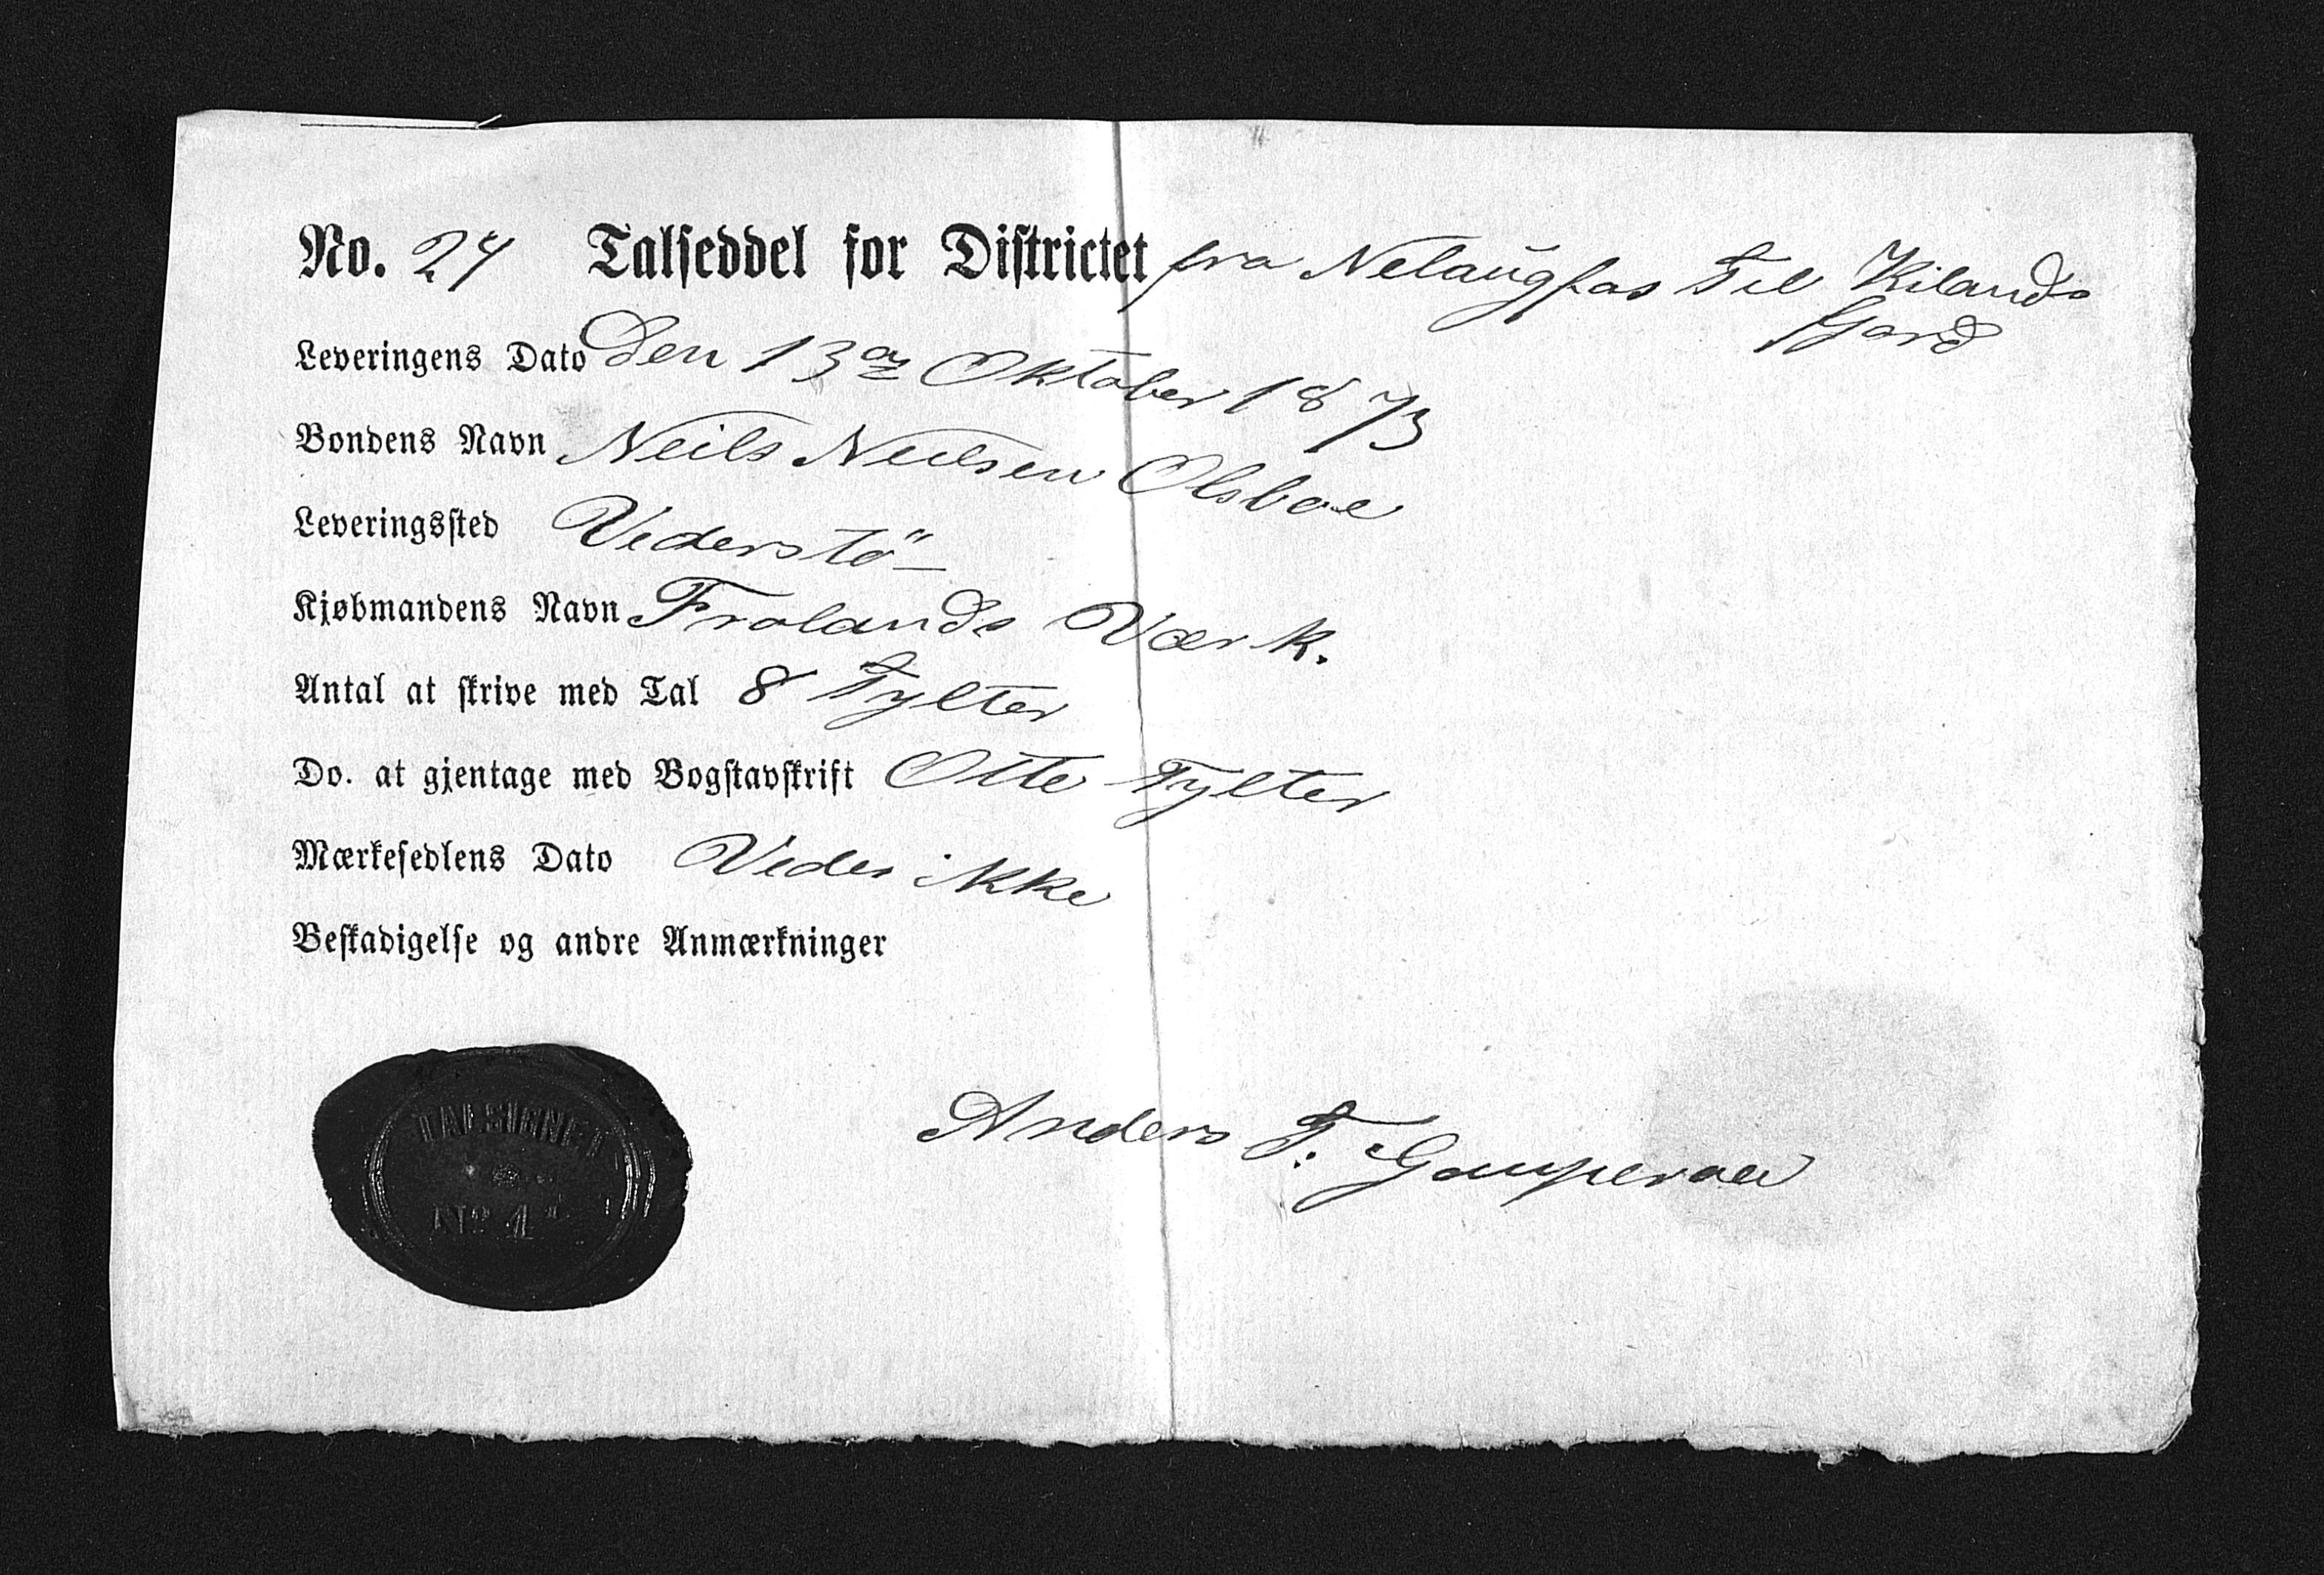 No. 24 Talseddel for Districtet fra Nelaugfos til Kilands
Gard
Leveringens Dato Den 13de Oktober 1873
Bondens Navn Neils Neilsen Olsboe
Leveringssted Vederstö
Kjøbmandens Navn Frolands Værk.
Antal at skrive med Tal 8 Tylter
Do. at gjentage med Bogstavskrift Otte Tylter
Mærkesedlens Dato Vedes ikke
Beskadigelse og andre Anmærkninger
Anders T.
TALSIGNET
No 1